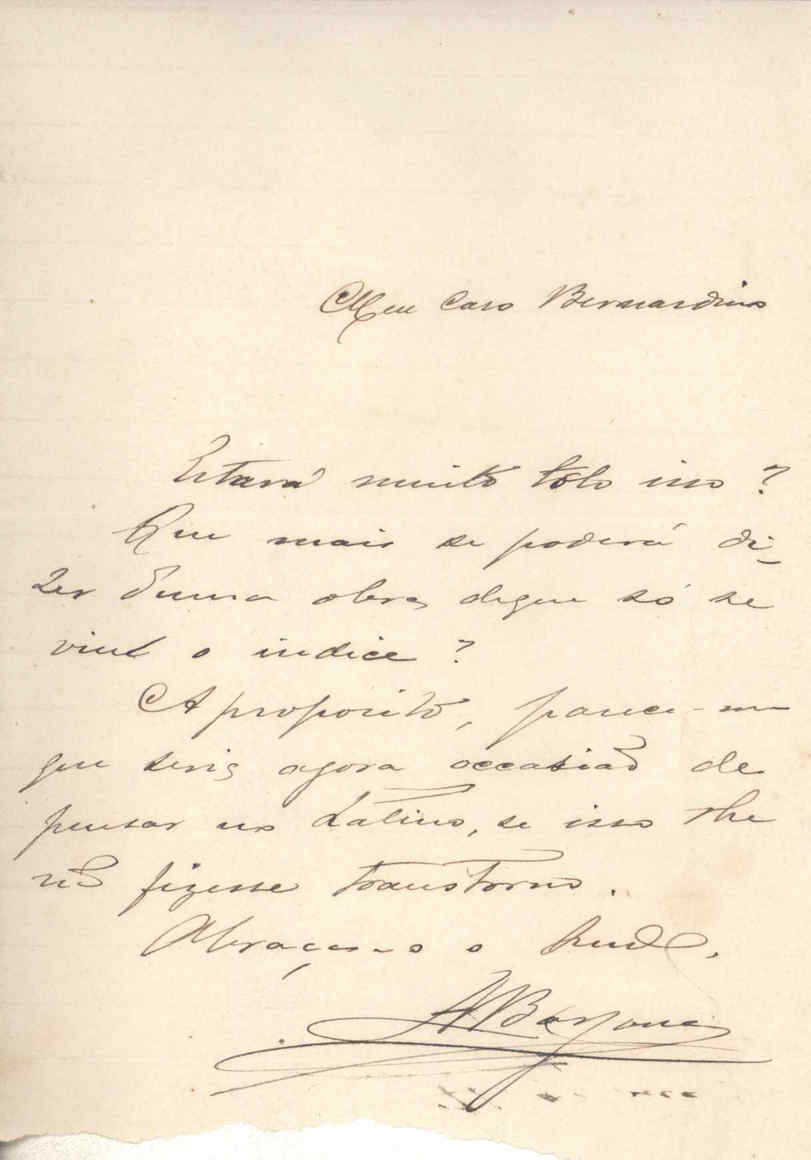 Meu Caro Bernardino
Estará muito tolo isso?
Que mais se poderá di-
zer d'uma obra de que só se
viu o indice?
A proposito, parece-me
que seria agora occasião de
pensar no Latino, se isso lhe
não fizesse transtorno.
Abraça-o o
A Bazoni